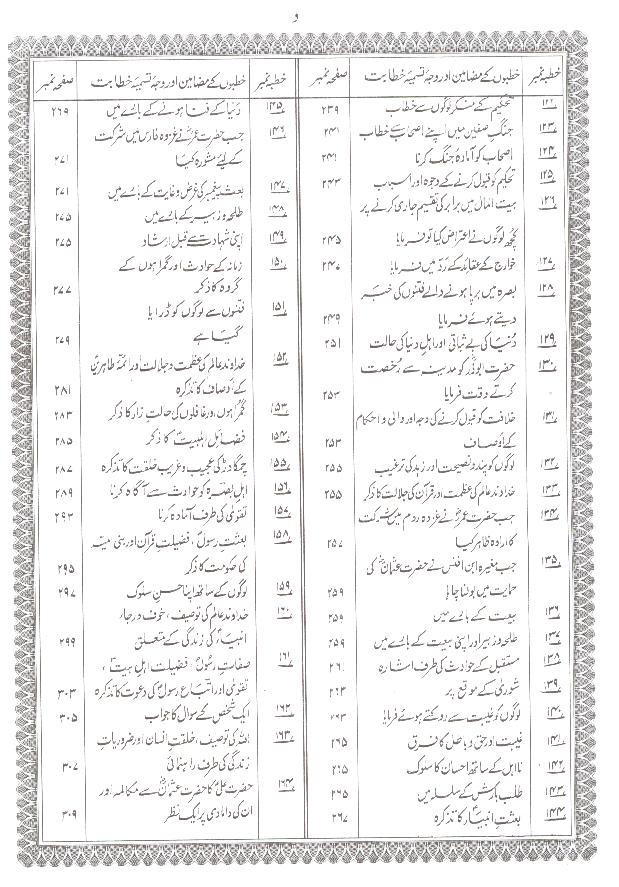 و
خطبہ نمبر | خطبوں کے مضامین اور وجہ تسمیۂ خطابت | صفحہ نمبر
۱۲۲ تحکیم کے منکر لوگوں سے خطاب ۲۳۹
۱۲۳ جنگ صفین میں اپنے اصحاب سے خطاب ۲۴۱
۱۲۴ اصحاب کو آمادہ جنگ کرنا ۲۴۱
۱۲۵ تحکیم کو قبول کرنے کے وجوہ اور اسباب ۲۴۳
۱۲۶ بیت المال میں برابر کی تقسیم جاری کرنے پر
کچھ لوگوں نے اعتراض کیا تو فرمایا ۲۴۵
۱۲۷ خوارج کے عقائد کے رد میں فرمایا ۲۴۷
۱۲۸ بصرہ میں برپا ہونے والے فتنوں کی خبر
دیتے ہوئے فرمایا ۲۴۹
۱۲۹ دنیا کی بے ثباتی اور اہل دنیا کی حالت ۲۵۱
۱۳۰ حضرت ابوذرؓ کو مدینہ سے رخصت
کرتے وقت فرمایا ۲۵۳
۱۳۱ خلافت کو قبول کرنے کی وجہ اور والی و احکام
کے اوصاف ۲۵۳
۱۳۲ لوگوں کو پند و نصیحت اور زہد کی ترغیب ۲۵۵
۱۳۳ خداوند عالم کی عظمت اور قرآن کی جلالت کا ذکر ۲۵۵
۱۳۴ جب حضرت عمرؓ نے غزوہ روم میں شرکت
کا ارادہ ظاہر کیا ۲۵۷
۱۳۵ جب مغیرہ ابن اخنس نے حضرت عثمانؓ کی
حمایت میں بولنا چاہا ۲۵۹
۱۳۶ بیعت کے بارے میں ۲۵۹
۱۳۷ طلحہ و زبیر اور اپنی بیعت کے بارے میں ۲۵۹
۱۳۸ مستقبل کے حوادث کی طرف اشارہ ۲۶۱
۱۳۹ شوریٰ کے موقع پر ۲۶۳
۱۴۰ لوگوں کو غیبت سے روکتے ہوئے فرمایا ۲۶۳
۱۴۱ غیبت اور حق و باطل کا فرق ۲۶۵
۱۴۲ نااہل کے ساتھ احسان کا سلوک ۲۶۵
۱۴۳ طلب بارش کے سلسلہ میں ۲۶۵
۱۴۴ بعثت انبیاؑ کا تذکرہ ۲۶۷
خطبہ نمبر | خطبوں کے مضامین اور وجہ تسمیۂ خطابت | صفحہ نمبر
۱۴۵ دنیا کے فنا ہونے کے بارے میں ۲۶۹
۱۴۶ جب حضرت عمرؓ نے غزوہ فارس میں شرکت
کے لیے مشورہ کیا ۲۷۱
۱۴۷ بعثت پیغمبر کی غرض و غایت کے بارے میں ۲۷۱
۱۴۸ طلحہ و زبیر کے بارے میں ۲۷۵
۱۴۹ اپنی شہادت سے قبل ارشاد ۲۷۵
۱۵۰ زمانہ کے حوادث اور گمراہوں کے
گروہ کا ذکر ۲۷۷
۱۵۱ فتنوں سے لوگوں کو ڈرایا
گیا ہے ۲۷۹
۱۵۲ خداوند عالم کی عظمت و جلالت اور ائمہ طاہرینؑ
کے اوصاف کا تذکرہ ۲۸۱
۱۵۳ گمراہوں، اور غافلوں کی حالت زار کا ذکر ۲۸۳
۱۵۴ فضائل اہلبیتؑ کا ذکر ۲۸۵
۱۵۵ چمگادڑ کی عجیب و غریب خلقت کا تذکرہ ۲۸۷
۱۵۶ اہل بصرہ کو حوادث سے آگاہ کرنا ۲۸۹
۱۵۷ تقویٰ کی طرف آمادہ کرنا ۲۹۳
۱۵۸ بعثت رسولؐ، فضیلت قرآن اور بنی میہ
کی حکومت کا ذکر ۲۹۵
۱۵۹ لوگوں کے ساتھ اپنا حسن سلوک ۲۹۷
۱۶۰ خداوند عالم کی توصیف، خوف و رجاء،
انبیاءؑ کی زندگی کے متعلق ۲۹۹
۱۶۱ صفات رسولؐ، فضیلت اہل بیتؑ،
تقویٰ اور اتباع رسولؐ کی دعوت کا تذکرہ ۳۰۳
۱۶۲ ایک شخص کے سوال کا جواب ۳۰۵
۱۶۳ اللہ کی توصیف، خلقت انسان اور ضروریات
زندگی کی طرف راہنمائی ۳۰۷
۱۶۴ حضرت علیؑ کا حضرت عثمانؓ سے مکالمہ اور
ان کی دامادی پر ایک نظر ۳۰۹